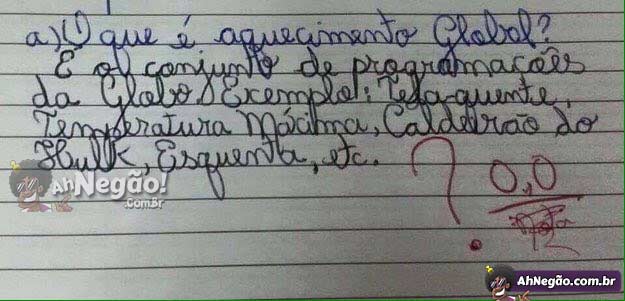 a) O que é aquecimento Global?
É o conjunto de programações
da Globo. Exemplo: Tela-quente,
Temperatura Máxima, Caldeirão do
Hulk, Esquenta, etc.
? 0,0
AhNegão!
.ComBr
AhNegão.com.br